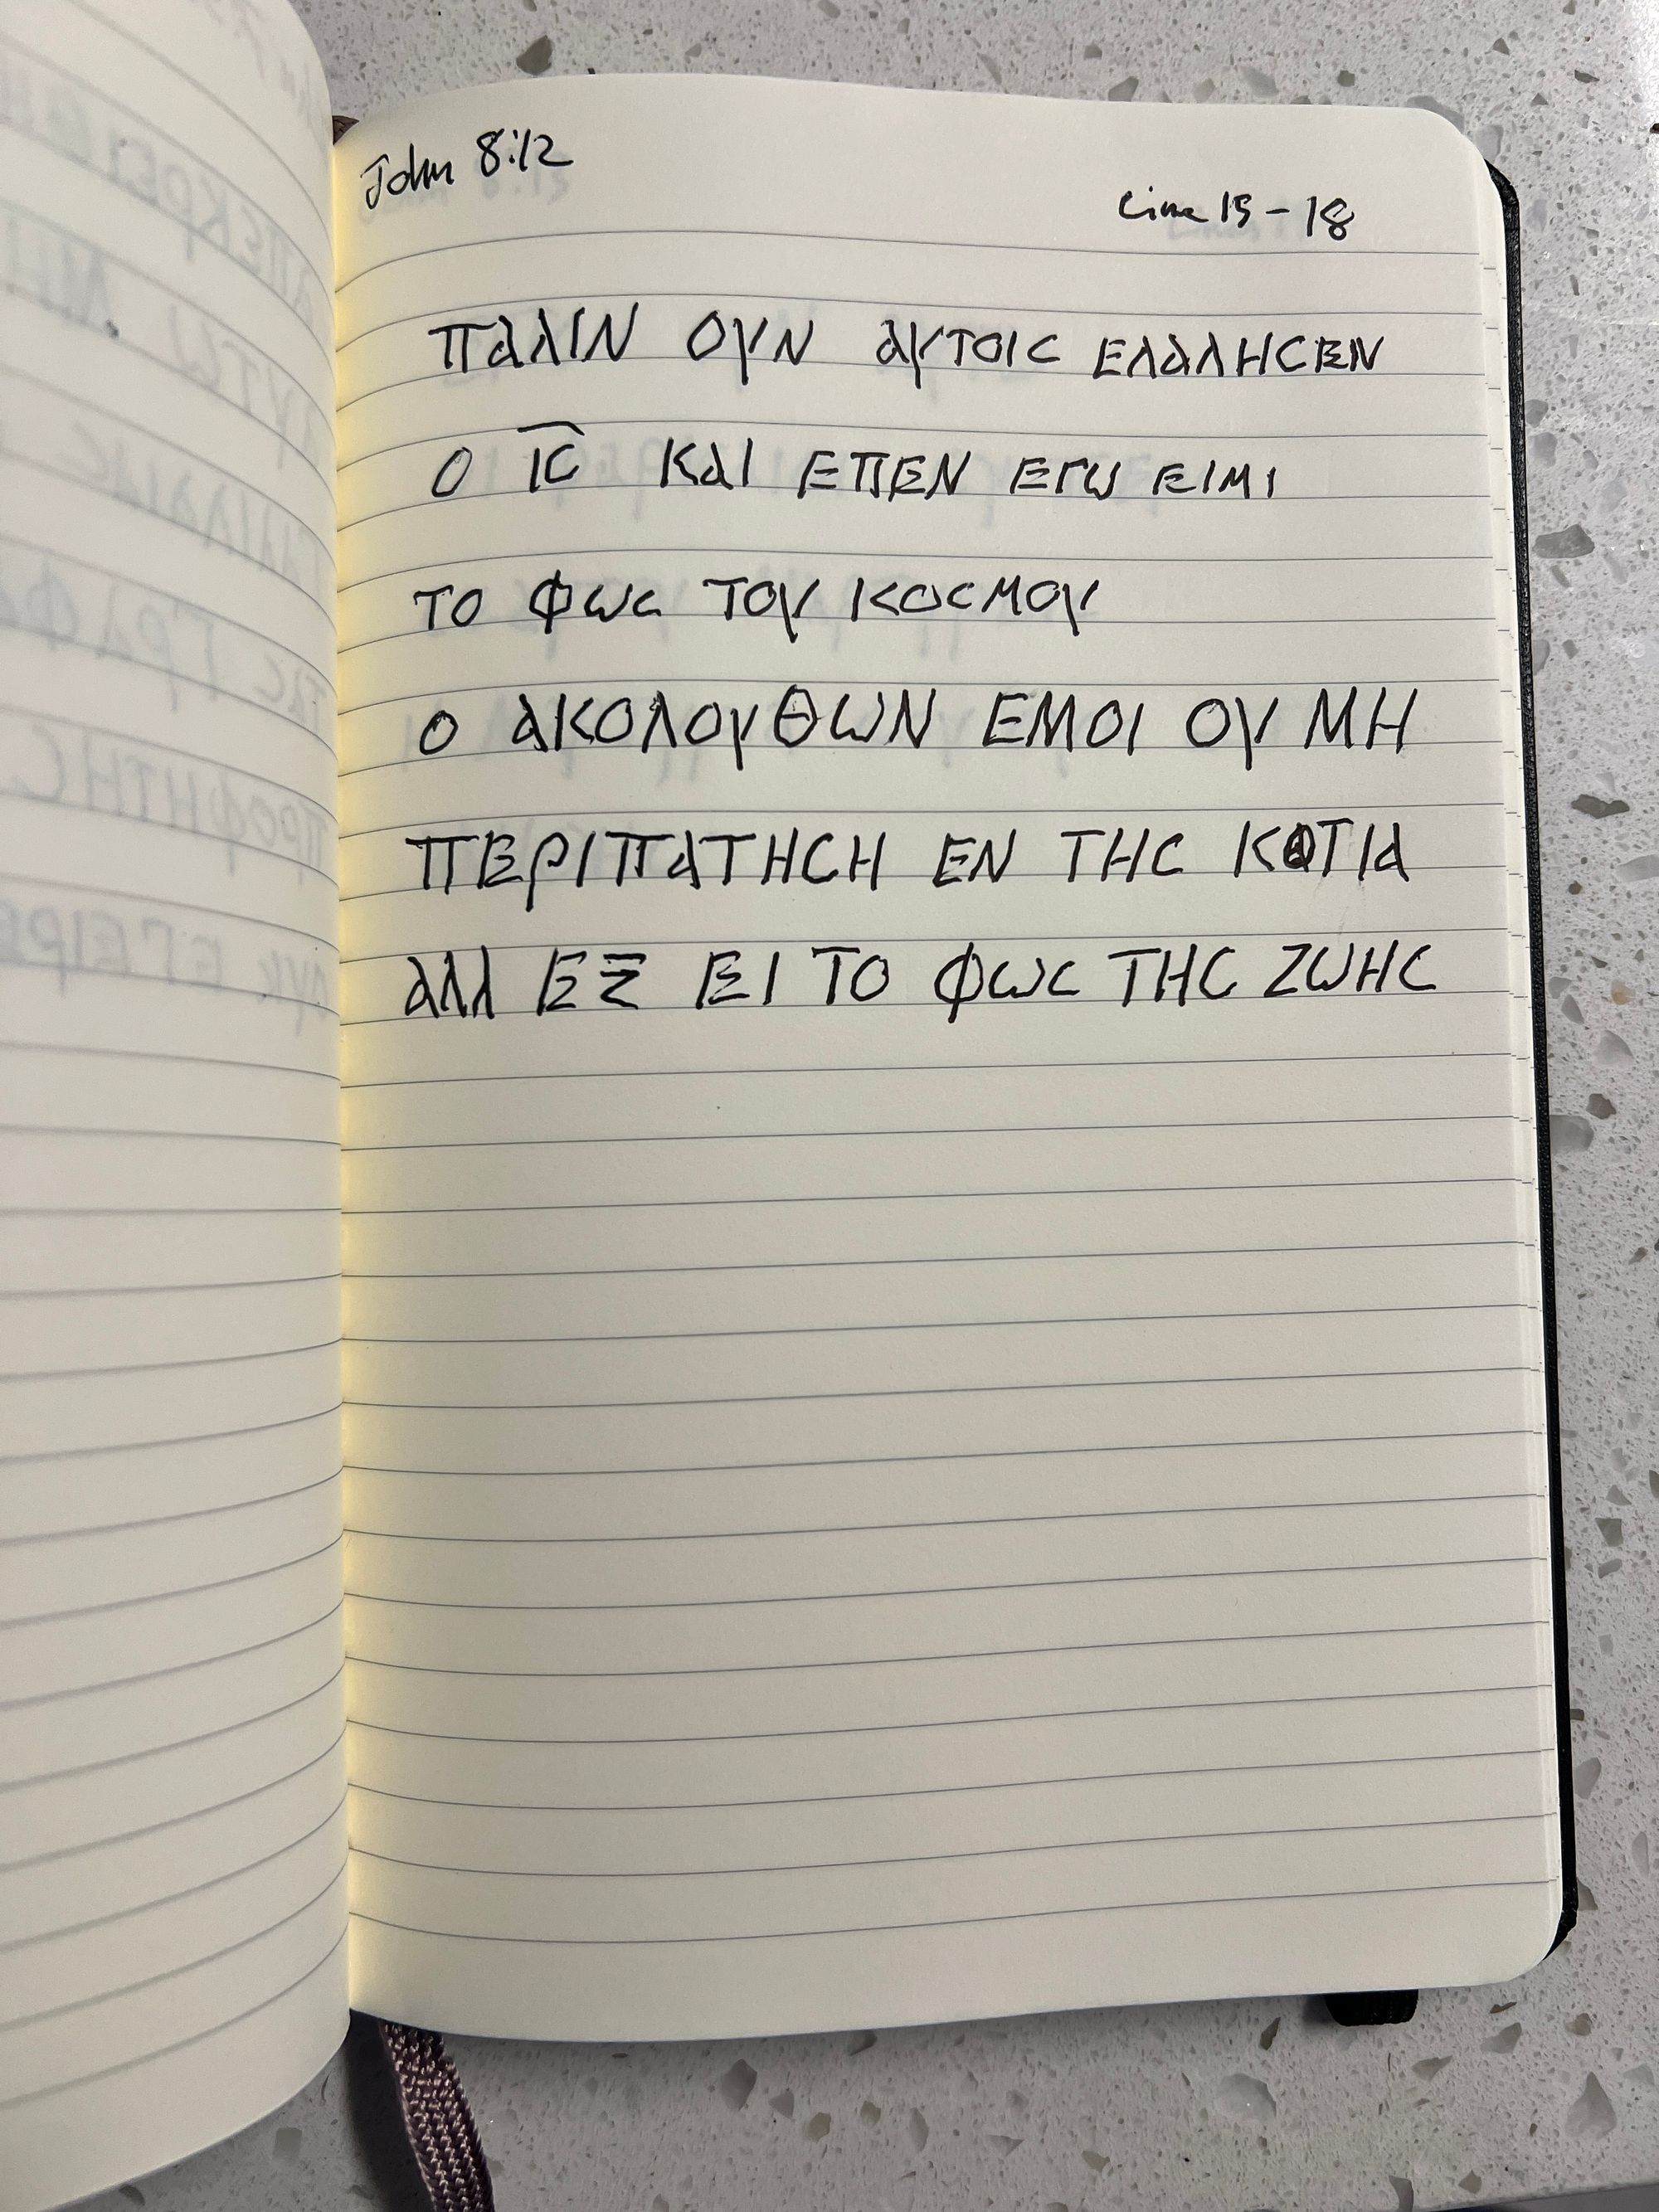 John 8:12
Line 15-18
ΠΑΛΙΝ ΟΥΝ ΑΥΤΟΙϹ ΕΛΑΛΗϹΕΝ
Ο ΙϹ̅ ΚΑΙ ΕΠΕΝ ΕΓⲰ ΕΙΜΙ
ΤΟ ΦⲰϹ ΤΟΥ ΚΟϹΜΟΥ
Ο ΑΚΟΛΟΥΘⲰΝ ΕΜΟΙ ΟΥ ΜΗ
ΠΕΡΙΠΑΤΗϹΗ ΕΝ ΤΗϹ ΚΟΤΙΑ
ΑΛΛ ΕΞ ΕΙ ΤΟ ΦⲰϹ ΤΗϹ ΖⲰΗϹ